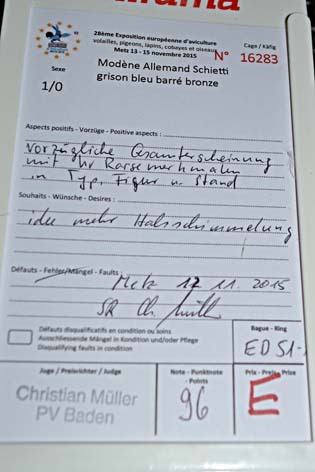 28ème Exposition européenne d'aviculture
volailles, pigeons, lapins, cobayes et oiseaux
Metz 13 - 15 novembre 2015
Cage / Käfig
N° 16283
Modène Allemand Schietti
grison bleu barré bronze
Sexe
1/0
Aspects positifs - Vorzüge - Positive aspects :
Vorzügliche Gesamterscheinung
mit Rassemerkmalen
in Typ, Figur u. Stand
Souhaits - Wünsche - Desires :
mehr Halsschimmelung
Défauts - Fehler/Mängel - Faults :
Metz 12 11. 2015
SR Ch. Müller
Défauts disqualificatifs en condition ou soins
Ausschliessende Mängel in Kondition und/oder Pflege
Disqualifying faults in condition
Bague - Ring
ED 51-
Juge / Preisrichter / Judge
Christian Müller
PV Baden
Note - Punktnote
- Points
96
Prix - Preis - Prize
E